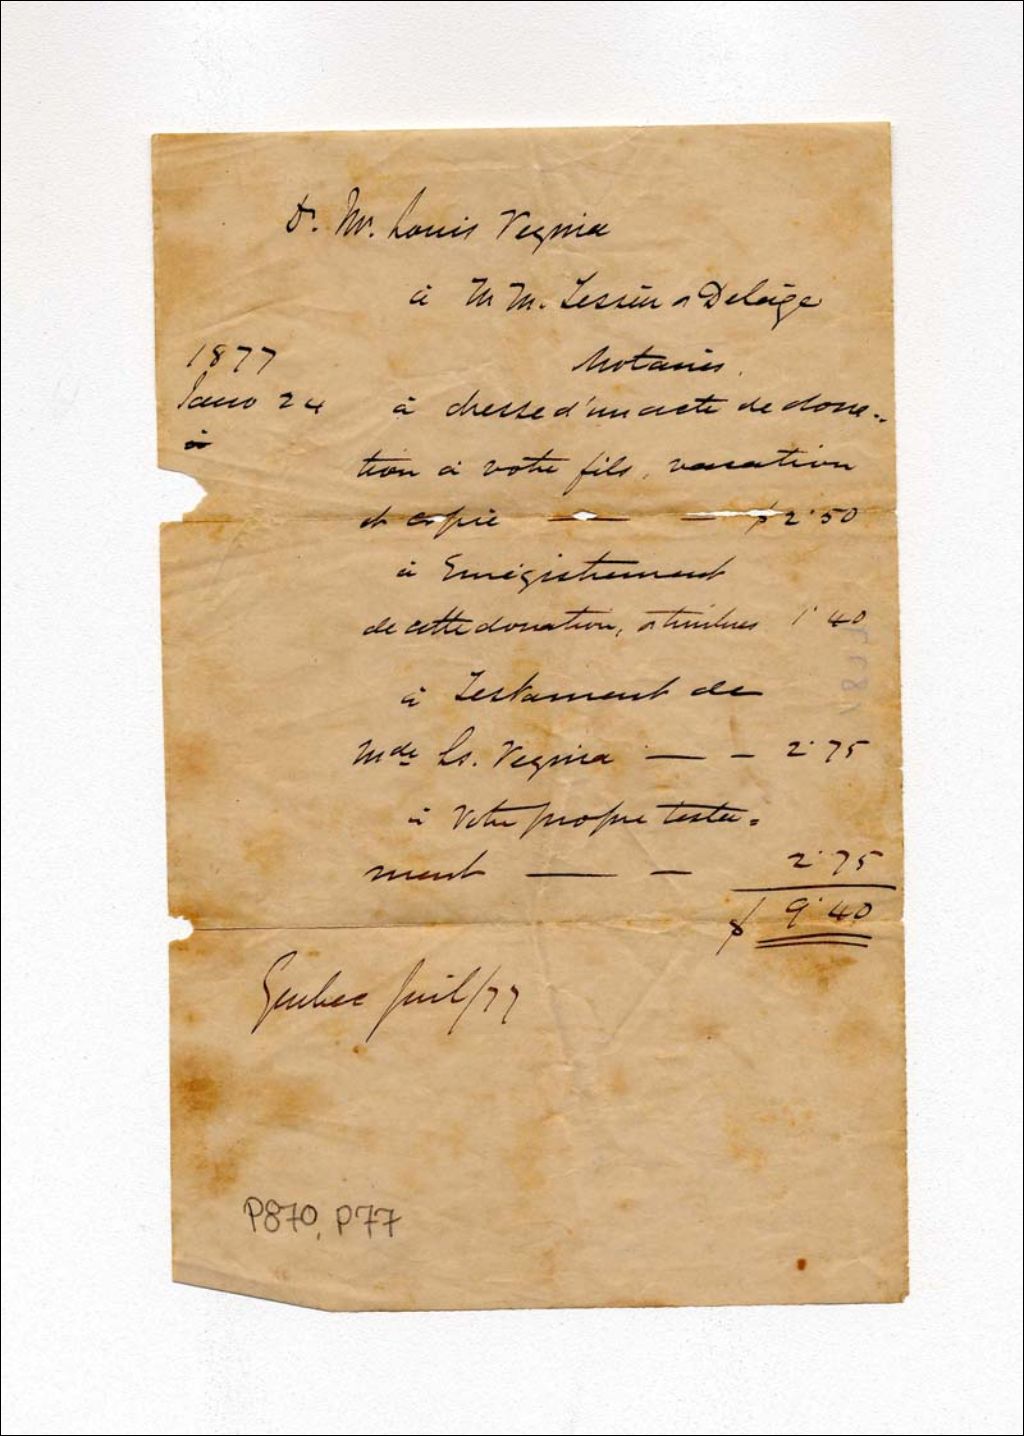 Dr. Mr. Louis Vegnia
à M M. Tessier & Delâge
Notaires.
1877
Janv 24 à dresse d'un acte de dona=
à
tion à votre fils, vacation
et copie — — $ 2.50
à Enrégistrement
de cette donation, & timbres 1.40
à Testament de
Mde Ls. Vegnia — — 2.75
à Votre propre testa=
ment — — 2.75
$ 9.40
Quebec Juil/77
P870, P77